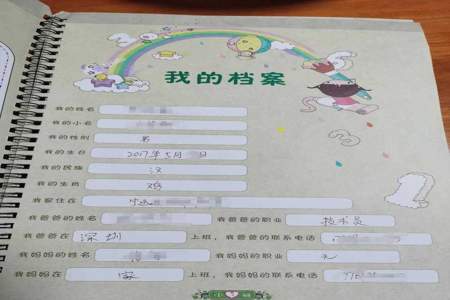 我的档案
我的姓名
我的小名
我的性别 男
我的生日 2017年5月 日
我的民族 汉
我的生肖 鸡
我家住在
我爸爸的姓名 我爸爸的职业 技术员
我爸爸在 深圳 上班，我爸爸的联系电话
我妈妈的姓名 我妈妈的职业 无
我妈妈在 家 上班，我妈妈的联系电话